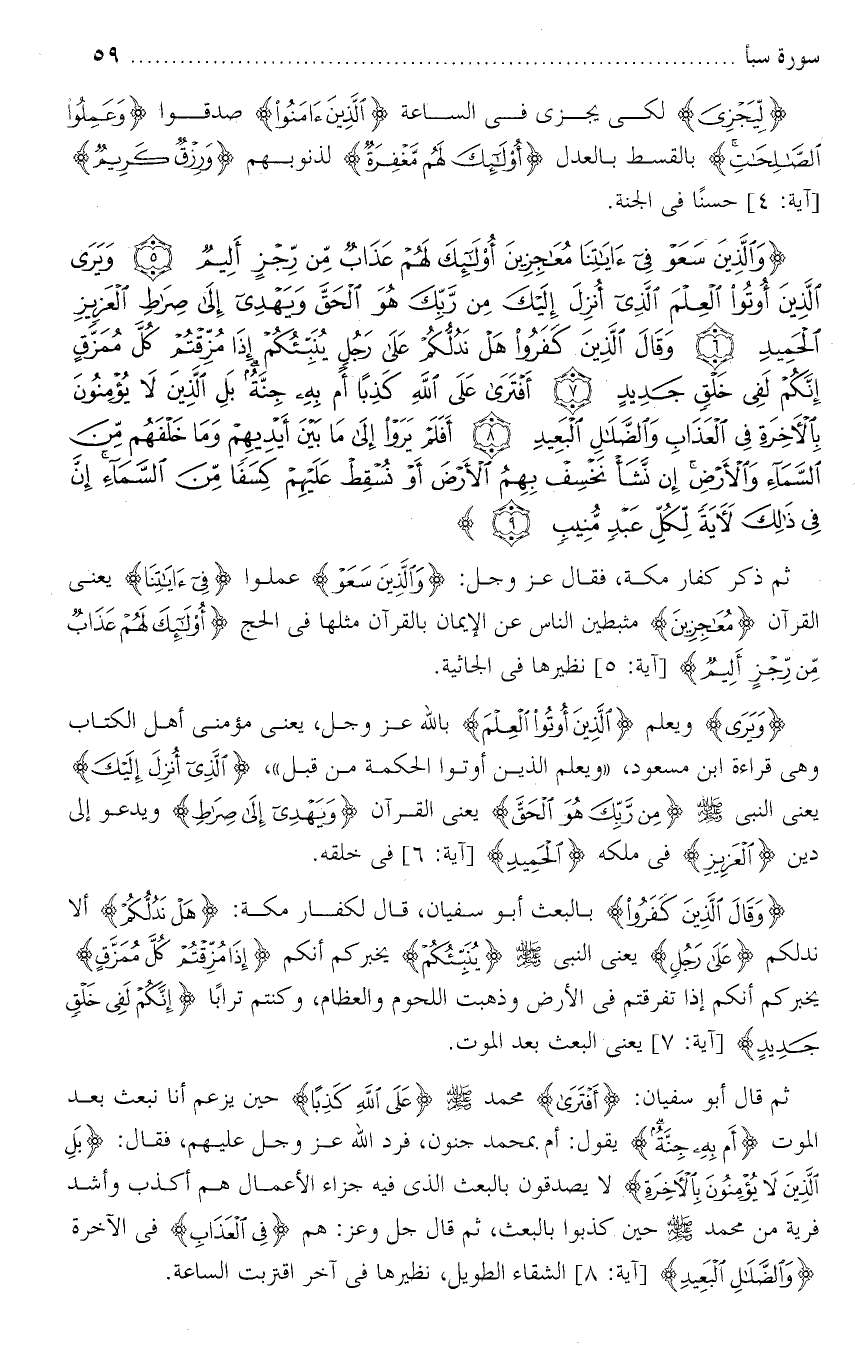 سورة سبأ ................................................................ ٥٩
﴿لِّيَجْزِىَ﴾ لكى يجزى فى الساعة ﴿الَّذِينَ ءَامَنُوا﴾ صدقوا ﴿وَعَمِلُوا
الصَّالِحَاتِ﴾ بالقسط بالعدل ﴿أُوْلَئِكَ لَهُم مَّغْفِرَةٌ﴾ لذنوبهم ﴿وَرِزْقٌ كَرِيمٌ﴾
[آية: ٤] حسنًا فى الجنة.
﴿وَالَّذِينَ سَعَوْ فِىٓ ءَايَاتِنَا مُعَاجِزِينَ أُوْلَئِكَ لَهُمْ عَذَابٌ مِّن رِّجْزٍ أَلِيمٌ ٥ وَيَرَى
الَّذِينَ أُوتُوا الْعِلْمَ الَّذِىٓ أُنزِلَ إِلَيْكَ مِن رَّبِّكَ هُوَ الْحَقَّ وَيَهْدِىٓ إِلَى صِرَاطِ الْعَزِيزِ
الْحَمِيدِ ٦ وَقَالَ الَّذِينَ كَفَرُوا هَلْ نَدُلُّكُمْ عَلَى رَجُلٍ يُنَبِّئُكُمْ إِذَا مُزِّقْتُمْ كُلَّ مُمَزَّقٍ
إِنَّكُمْ لَفِى خَلْقٍ جَدِيدٍ ٧ أَفْتَرَى عَلَى اللَّهِ كَذِبًا أَم بِهِ جِنَّةٌۗ بَلِ الَّذِينَ لَا يُؤْمِنُونَ
بِالْآخِرَةِ فِى الْعَذَابِ وَالضَّلَالِ الْبَعِيدِ ٨ أَفَلَمْ يَرَوْا إِلَى مَا بَيْنَ أَيْدِيهِمْ وَمَا خَلْفَهُم مِّنَ
السَّمَآءِ وَالْأَرْضِۚ إِن نَّشَأْ نَخْسِفْ بِهِمُ الْأَرْضَ أَوْ نُسْقِطْ عَلَيْهِمْ كِسَفًا مِّنَ السَّمَآءِۚ إِنَّ
فِى ذَلِكَ لَآيَةً لِّكُلِّ عَبْدٍ مُّنِيبٍ ٩ ﴾
ثم ذكر كفار مكة، فقال عز وجل: ﴿وَالَّذِينَ سَعَوْ﴾ عملوا ﴿فِىٓ ءَايَاتِنَا﴾ يعنى
القرآن ﴿مُعَاجِزِينَ﴾ مثبطين الناس عن الإيمان بالقرآن مثلها فى الحج ﴿أُوْلَئِكَ لَهُمْ عَذَابٌ
مِّن رِّجْزٍ أَلِيمٌ﴾ [آية: ٥] نظيرها فى الجاثية.
﴿وَيَرَى﴾ ويعلم ﴿الَّذِينَ أُوتُوا الْعِلْمَ﴾ بالله عز وجل، يعنى مؤمنى أهل الكتاب
وهى قراءة ابن مسعود، «ويعلم الذين أوتوا الحكمة من قبل»، ﴿الَّذِىٓ أُنزِلَ إِلَيْكَ﴾
يعنى النبى ﷺ ﴿مِن رَّبِّكَ هُوَ الْحَقَّ﴾ يعنى القرآن ﴿وَيَهْدِىٓ إِلَى صِرَاطِ﴾ ويدعو إلى
دين ﴿الْعَزِيزِ﴾ فى ملكه ﴿الْحَمِيدِ﴾ [آية: ٦] فى خلقه.
﴿وَقَالَ الَّذِينَ كَفَرُوا﴾ بالبعث أبو سفيان، قال لكفار مكة: ﴿هَلْ نَدُلُّكُمْ﴾ ألا
ندلكم ﴿عَلَى رَجُلٍ﴾ يعنى النبى ﷺ ﴿يُنَبِّئُكُمْ﴾ يخبركم أنكم ﴿إِذَا مُزِّقْتُمْ كُلَّ مُمَزَّقٍ﴾
يخبركم أنكم إذا تفرقتم فى الأرض وذهبت اللحوم والعظام، وكنتم ترابًا ﴿إِنَّكُمْ لَفِى خَلْقٍ
جَدِيدٍ﴾ [آية: ٧] يعنى البعث بعد الموت.
ثم قال أبو سفيان: ﴿أَفْتَرَى﴾ محمد ﷺ ﴿عَلَى اللَّهِ كَذِبًا﴾ حين يزعم أنا نبعث بعد
الموت ﴿أَم بِهِ جِنَّةٌۗ﴾ يقول: أم بمحمد جنون، فرد الله عز وجل عليهم، فقال: ﴿بَلِ
الَّذِينَ لَا يُؤْمِنُونَ بِالْآخِرَةِ﴾ لا يصدقون بالبعث الذى فيه جزاء الأعمال هم أكذب وأشد
فرية من محمد ﷺ حين كذبوا بالبعث، ثم قال جل وعز: هم ﴿فِى الْعَذَابِ﴾ فى الآخرة
﴿وَالضَّلَالِ الْبَعِيدِ﴾ [آية: ٨] الشقاء الطويل، نظيرها فى آخر اقتربت الساعة.